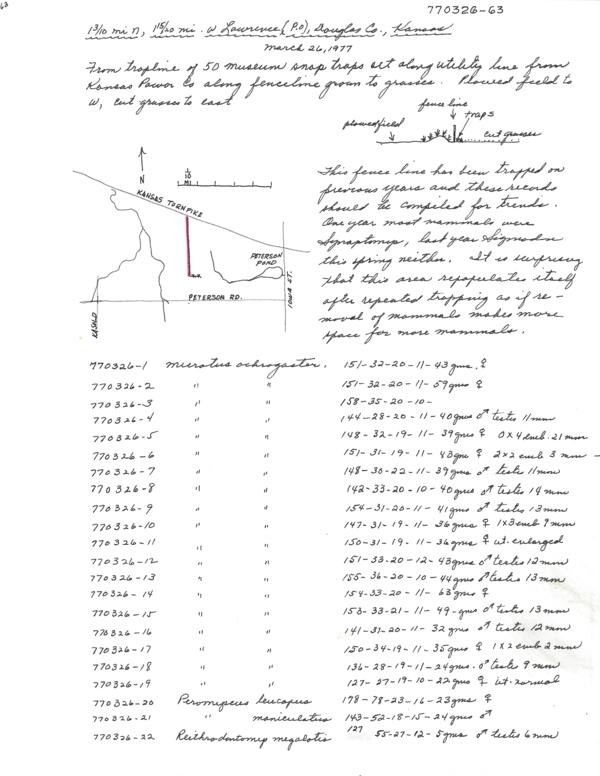 63
770326-63
1 3/10 mi N, 1 15/20 mi. W Lawrence (P.O), Douglas Co., Kansas
March 26, 1977
From trapline of 50 museum snap traps set along utility line from
Kansas Power Co along fenceline grown to grasses. Plowed field to
W, cut grasses to east
fence line
traps
plowed field
cut grasses
N
1/10
MI
KANSAS TURNPIKE
PETERSON
POND
IOWA ST.
PETERSON RD.
KASOLD
This fence line has been trapped on
previous years and these records
should be compiled for trends.
One year most mammals were
Synaptomys, last year Sigmodon
this spring neither. It is surprising
that this area repopulates itself
after repeated trapping as if re-
moval of mammals makes more
space for more mammals.
770326-1 Microtus ochrogaster. 151-32-20-11-43 gms. ♀
770326-2 " " 151-32-20-11-59 gms ♀
770326-3 " " 158-35-20-10-
770326-4 " " 144-28-20-11-40 gms ♂ testes 11 mm
770326-5 " " 148-32-19-11-39 gms ♀ 0x4 emb. 21 mm
770326-6 " " 151-31-19-11-43 gms ♀ 2x2 emb 3 mm -
770326-7 " " 148-30-22-11-39 gms ♂ testis 11 mm
770326-8 " " 142-33-20-10-40 gms ♂ testis 14 mm
770326-9 " " 154-31-20-11-41 gms ♂ testis 13 mm
770326-10 " " 147-31-19-11-36 gms ♀ 1x3 emb 9 mm
770326-11 " " 150-31-19-11-36 gms ♀ ut. enlarged
770326-12 " " 151-33-20-12-43 gms ♂ testes 12 mm
770326-13 " " 155-36-20-10-44 gms ♂ testes 13 mm
770326-14 " " 154-33-20-11-63 gms ♀
770326-15 " " 153-33-21-11-49-gms ♂ testis 13 mm
770326-16 " " 141-31-20-11-32 gms ♂ testis 12 mm
770326-17 " " 150-34-19-11-35 gms ♀ 1x2 emb 2 mm
770326-18 " " 136-28-19-11-24 gms. ♂ testis 9 mm
770326-19 " " 127-27-19-10-22 gms ♀ ut. normal
770326-20 Peromyscus leucopus 178-78-23-16-23 gms ♀
770326-21 " maniculatus 143-52-18-15-24 gms ♂
770326-22 Reithrodontomys megalotis 127 55-27-12-5 gms ♂ testes 6 mm